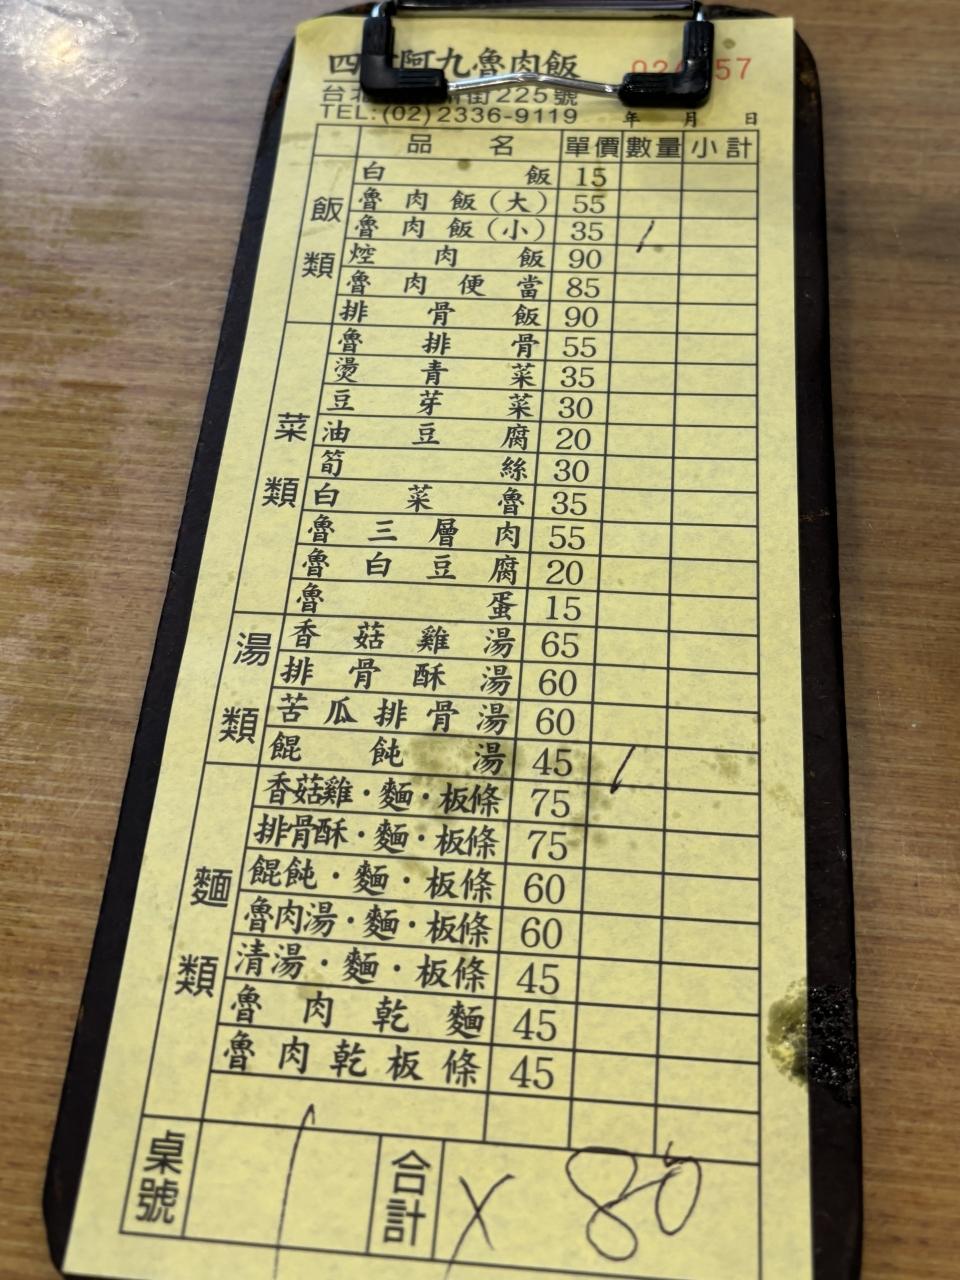 四 阿九魯肉飯
02 57
台北 街225號
TEL:(02)2336-9119 年 月 日
品名 單價 數量 小計
飯類
白飯 15
魯肉飯(大) 55
魯肉飯(小) 35 /
焢肉飯 90
魯肉便當 85
排骨飯 90
菜類
魯排骨 55
燙青菜 35
豆芽菜 30
油豆腐 20
筍絲 30
白菜魯 35
魯三層肉 55
魯白豆腐 20
魯蛋 15
湯類
香菇雞湯 65
排骨酥湯 60
苦瓜排骨湯 60
餛飩湯 45 /
麵類
香菇雞·麵·板條 75
排骨酥·麵·板條 75
餛飩·麵·板條 60
魯肉湯·麵·板條 60
清湯·麵·板條 45
魯肉乾麵 45
魯肉乾板條 45
桌號 1 合計 X 80